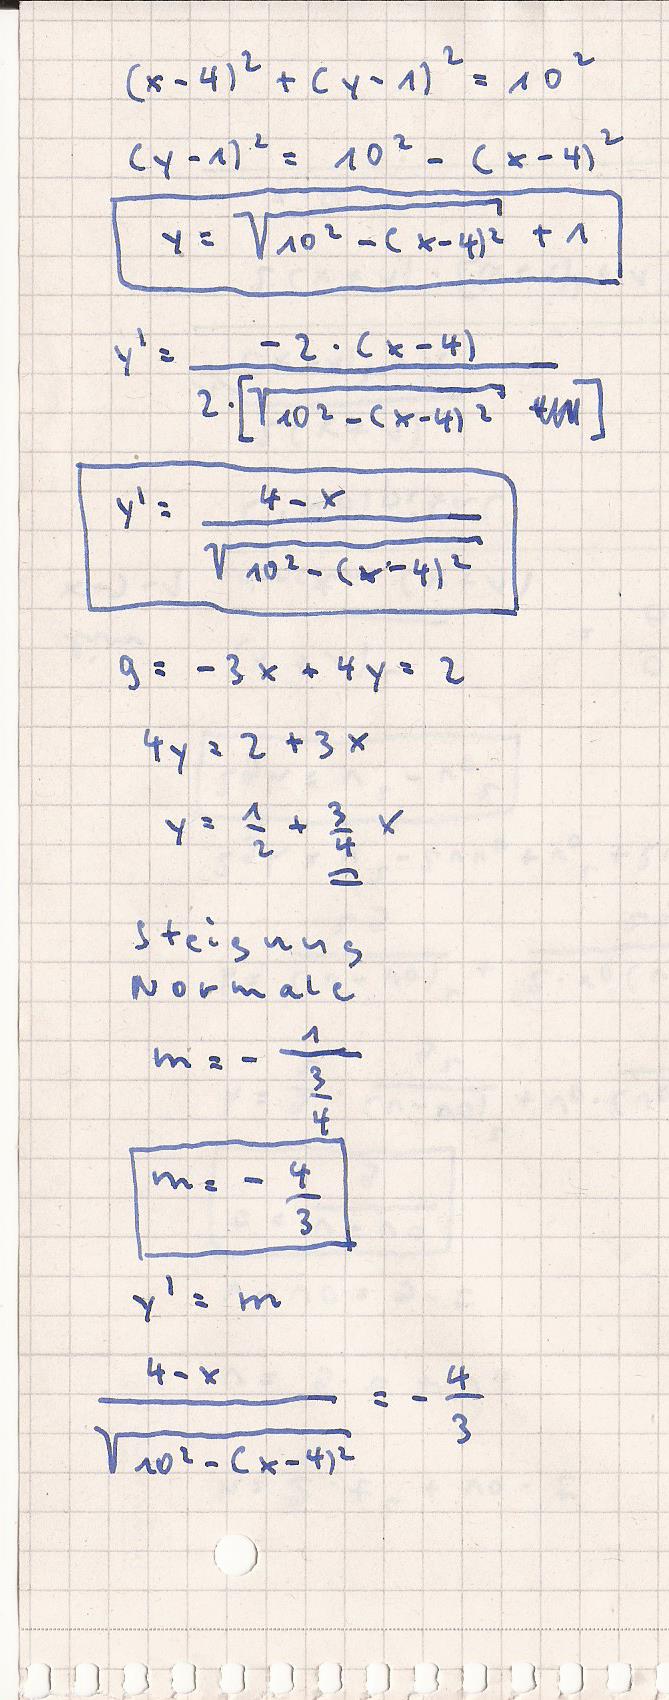 (x-4)² + (y-1)² = 10²
(y-1)² = 10² - (x-4)²
y = √(10² - (x-4)²) + 1
y' = (-2 · (x-4)) / (2 · [√(10² - (x-4)²)])
y' = (4-x) / √(10² - (x-4)²)
g = -3x + 4y = 2
4y = 2 + 3x
y = 1/2 + 3/4 x
Steigung
Normale
m = - 1 / (3/4)
m = - 4/3
y' = m
(4-x) / √(10² - (x-4)²) = - 4/3